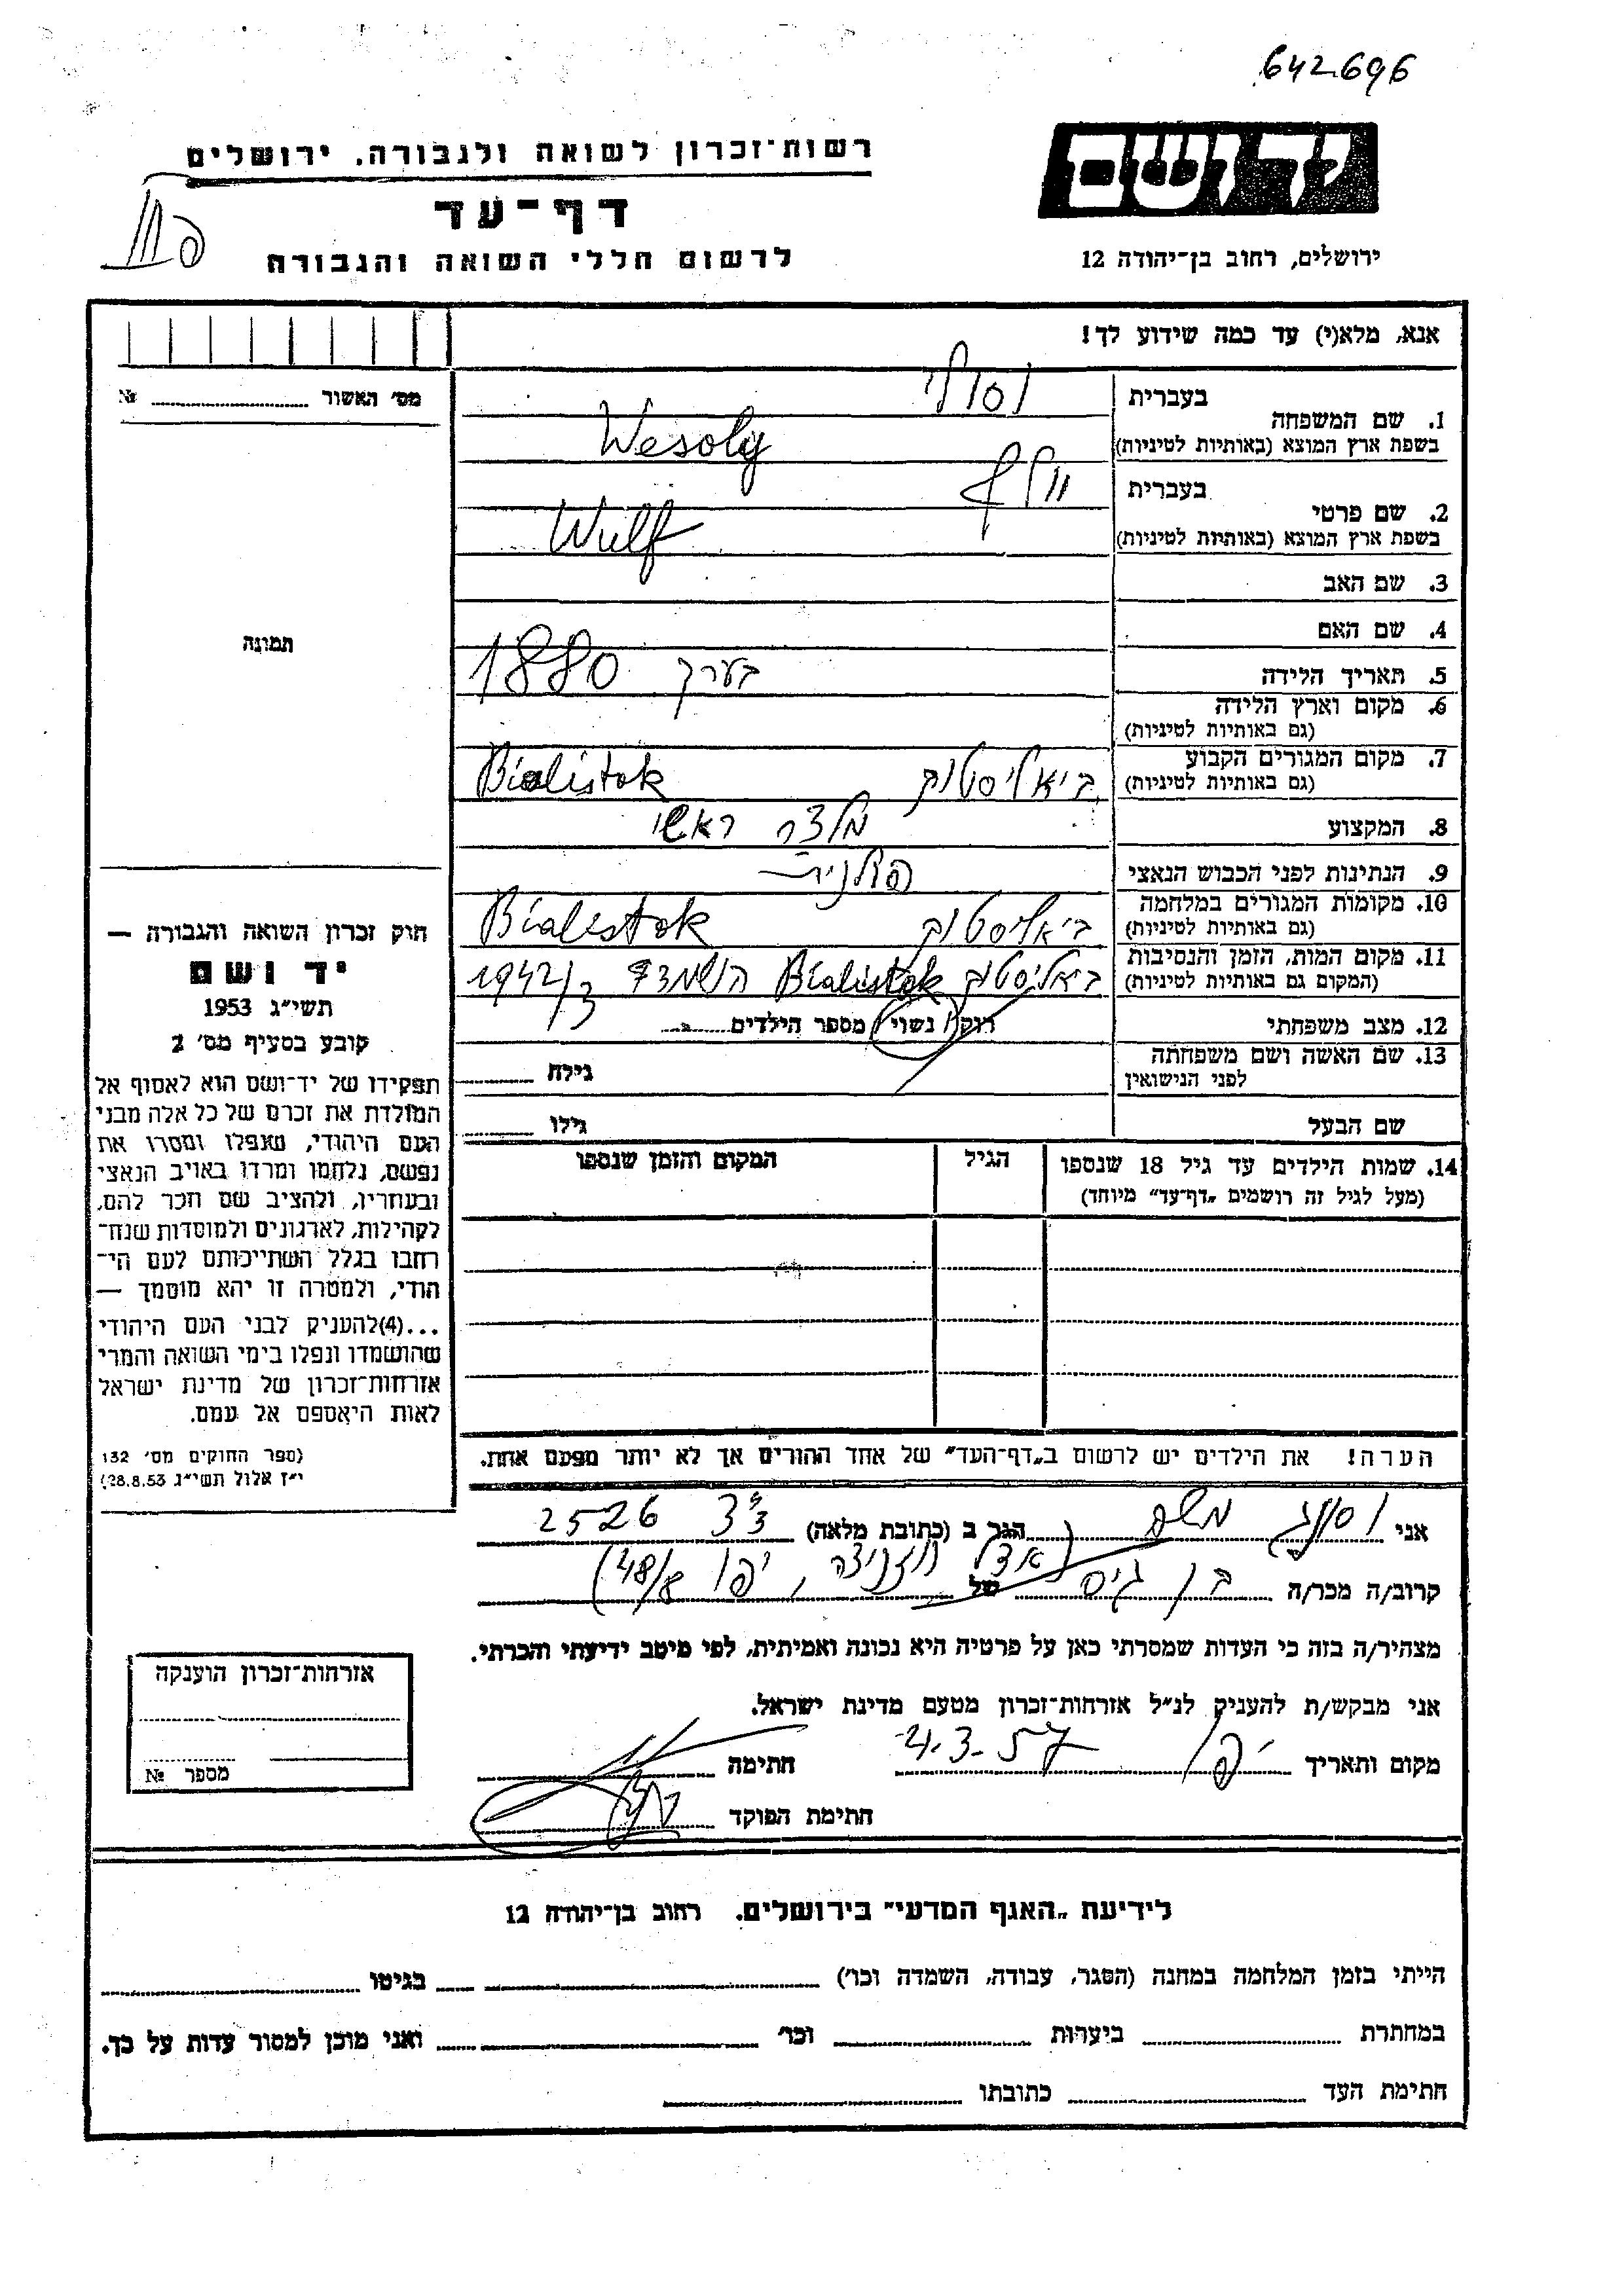 642696
יד ושם
רשות־זכרון לשואה ולגבורה, ירושלים
דף־עד
לרשום חללי השואה והגבורה
ירושלים, רחוב בן־יהודה 12
אנא, מלא(י) עד כמה שידוע לך!
מס׳ האשור № 
1. שם המשפחה
בעברית
בשפת ארץ המוצא (באותיות לטיניות)
Wesoly
2. שם פרטי
בעברית וולף
בשפת ארץ המוצא (באותיות לטיניות) Wulf
3. שם האב
4. שם האם
5. תאריך הלידה בערך 1880
6. מקום וארץ הלידה
(גם באותיות לטיניות)
7. מקום המגורים הקבוע ביאליסטוק Bialistok
(גם באותיות לטיניות)
8. המקצוע מלצר ראשי
9. הנתינות לפני הכבוש הנאצי פולנית
10. מקומות המגורים במלחמה ביאליסטוק Bialistok
(גם באותיות לטיניות)
11. מקום המות, הזמן והנסיבות ביאליסטוק Bialistok 1942/3
(המקום גם באותיות לטיניות)
12. מצב משפחתי רווק נשוי מספר הילדים
13. שם האשה ושם משפחתה
לפני הנישואין גילה
שם הבעל גילו
14. שמות הילדים עד גיל 18 שנספו הגיל המקום והזמן שנספו
(מעל לגיל זה רושמים „דף־עד״ מיוחד)
הערה! את הילדים יש לרשום ב„דף־העד״ של אחד ההורים אך לא יותר מפעם אחת.
תמונה
חוק זכרון השואה והגבורה —
יד ושם
תשי״ג 1953
קובע בסעיף מס׳ 2
תפקידו של יד־ושם הוא לאסוף אל
המולדת את זכרם של כל אלה מבני
העם היהודי, שנפלו ומסרו את
נפשם, נלחמו ומרדו באויב הנאצי
ובעוזריו, ולהציב שם וזכר להם,
לקהילות, לארגונים ולמוסדות שנח־
רבו בגלל השתייכותם לעם הי־
הודי, ולמטרה זו יהא מוסמך —
...(4) להעניק לבני העם היהודי
שהושמדו ונפלו בימי השואה והמרי
אזרחות־זכרון של מדינת ישראל
לאות היאספם אל עמם.
(ספר החוקים מס׳ 132
י״ז אלול תשי״ג 28.8.53)
אני משה הגר ב (כתובת מלאה) 2526
קרוב/ה מכר/ה בן גיס של יפו
מצהיר/ה בזה כי העדות שמסרתי כאן על פרטיה היא נכונה ואמיתית, לפי מיטב ידיעתי והכרתי.
אני מבקש/ת להעניק לנ״ל אזרחות־זכרון מטעם מדינת ישראל.
מקום ותאריך יפו 4.3.57 חתימה
חתימת הפוקד
אזרחות־זכרון הוענקה
מספר №
לידיעת „האגף המדעי״ בירושלים. רחוב בן־יהודה 12
הייתי בזמן המלחמה במחנה (הסגר, עבודה, השמדה וכו׳) בגיטו
במחתרת ביערות וכו׳ ואני מוכן למסור עדות על כך.
חתימת העד כתובתו